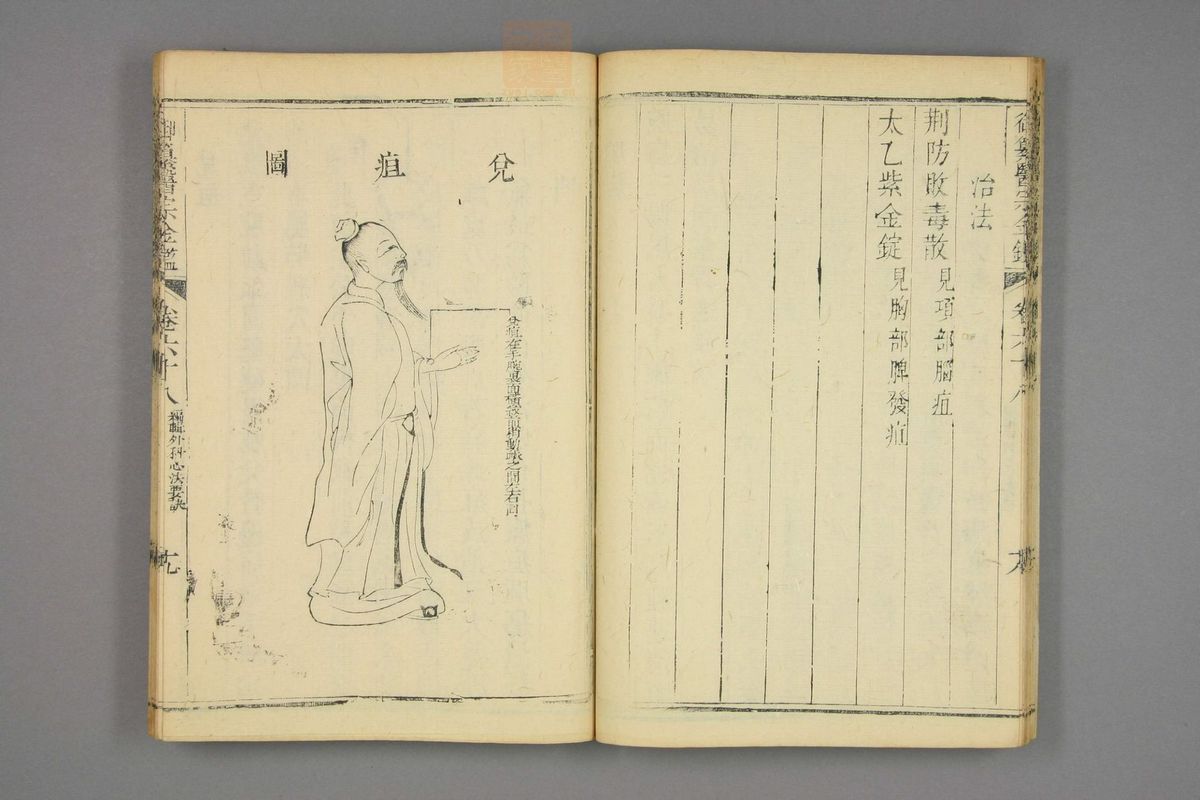 御纂醫宗金鑑
卷六十八
治法
荆防敗毒散見項部腦疽
太乙紫金錠見胸部脾發疽
兌疽圖
兌疽在手腕裏面橫紋前動脈之間左右同
御纂醫宗金鑑
卷六十八
編輯外科心法要訣
十九